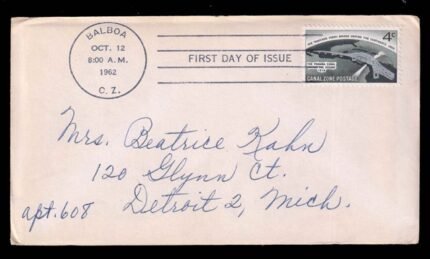 BALBOA
OCT. 12
8:00 A.M.
1962
C. Z.
FIRST DAY OF ISSUE
4¢
CANAL ZONE POSTAGE
Mrs. Beatrice Kahn
120 Glynn Ct.
apt. 608
Detroit 2, Mich.